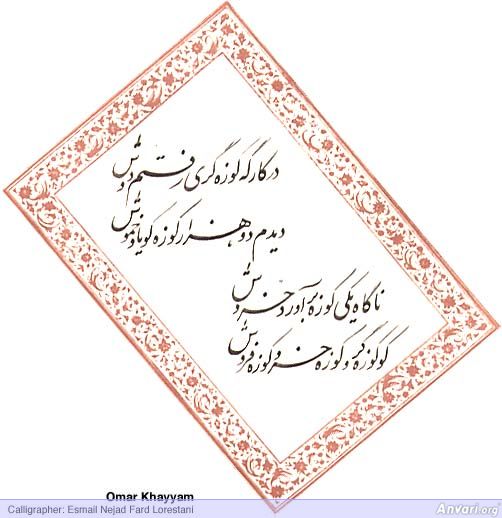 در کارگه کوزه گری رفتم دوش
دیدم دو هزار کوزه گویا و خموش
ناگاه یکی کوزه برآورد خروش
کو کوزه گر و کوزه خر و کوزه فروش
Omar Khayyam
Calligrapher: Esmail Nejad Fard Lorestani
Anvari.org